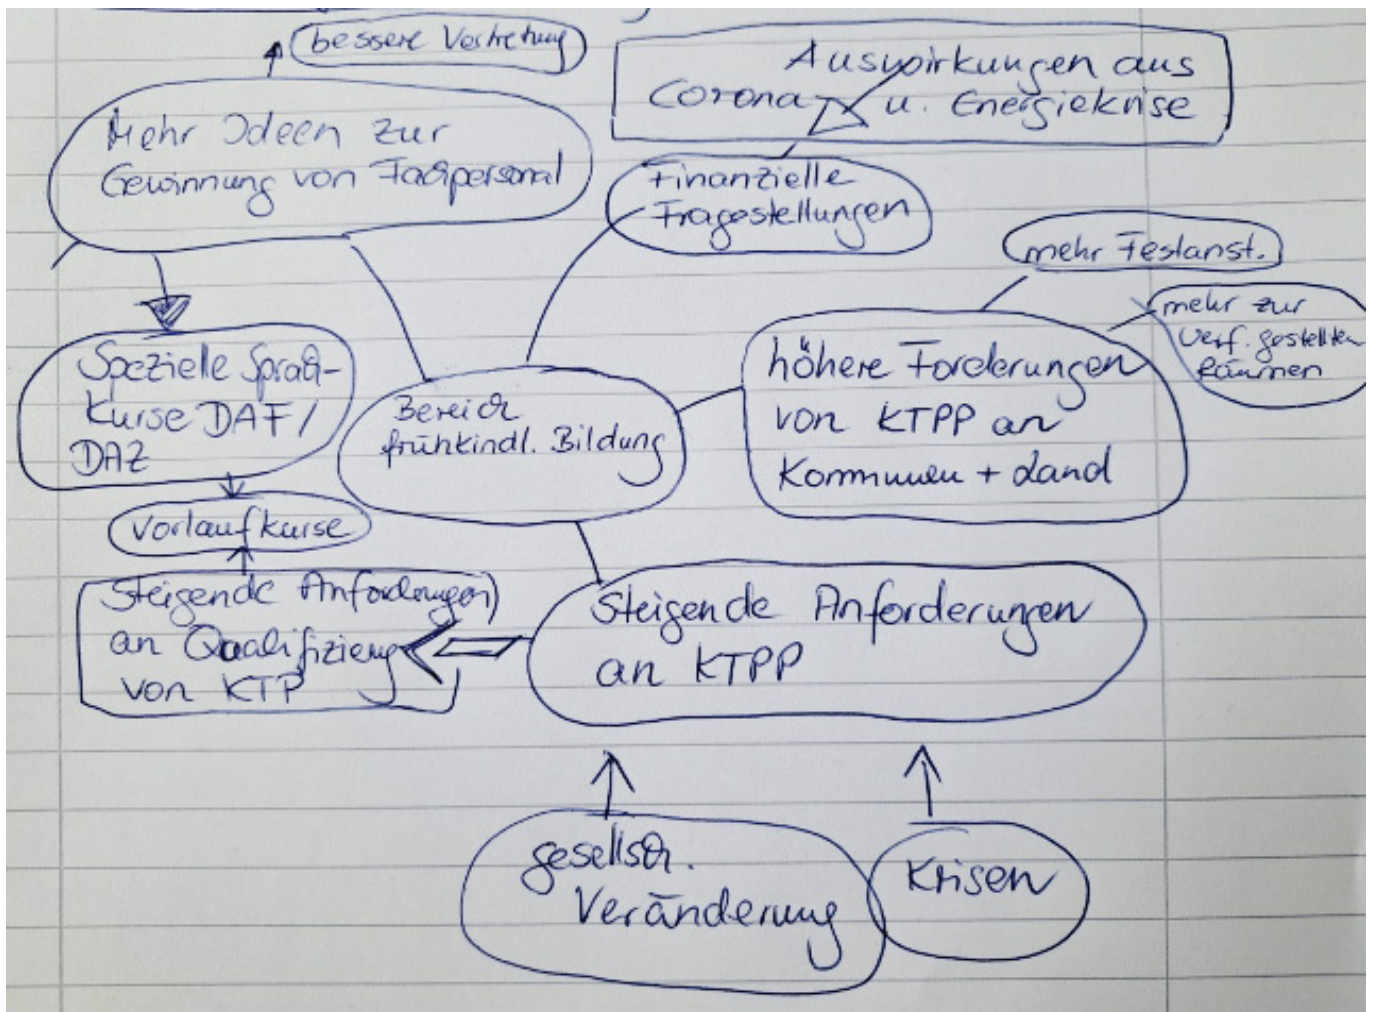 bessere Vertretung
Auswirkungen aus
Corona u. Energiekrise
Mehr Ideen zur
Gewinnung von Fachpersonal
Finanzielle
Fragestellungen
mehr Festanst.
mehr zur
Verf. gestellten
Räumen
Spezielle Sprach-
Kurse DAF /
DAZ
Bereich
frühkindl. Bildung
höhere Forderungen
von KTPP an
Kommunen + Land
Vorlaufkurse
Steigende Anforderungen
an Qualifizierung
von KTP
Steigende Anforderungen
an KTPP
gesellsch.
Veränderung
Krisen